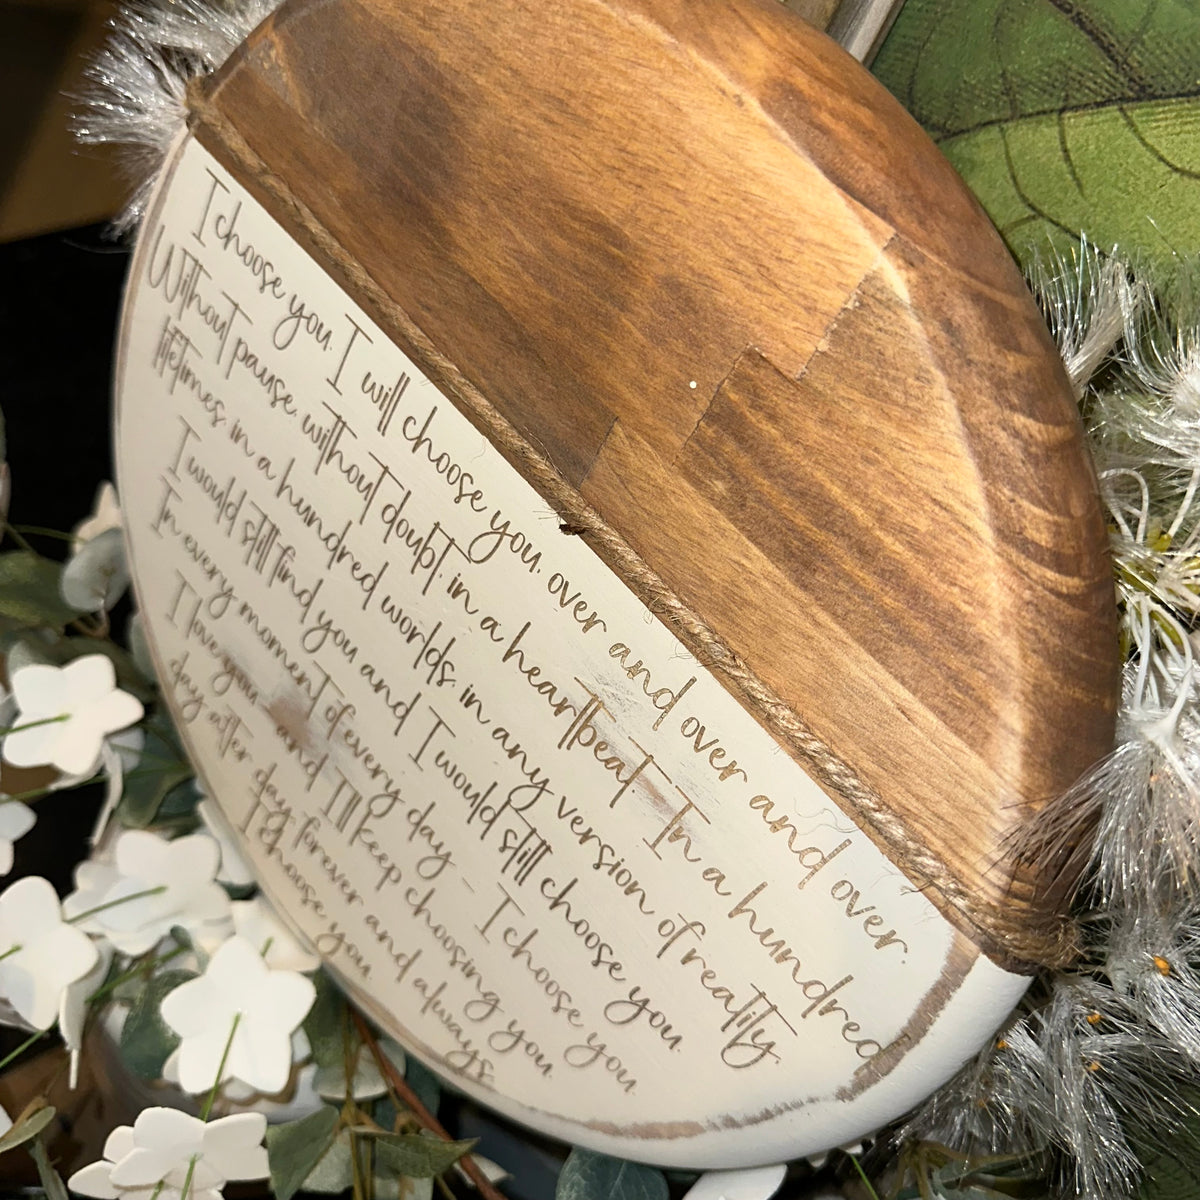 I choose you. I will choose you. over and over and over.
Without pause. without doubt. in a heartbeat. In a hundred
lifetimes. in a hundred worlds. in any version of reality.
I would still find you and I would still choose you.
In every moment of every day - I choose you.
I love you. and I'll keep choosing you.
day after day. forever and always.
I choose you.